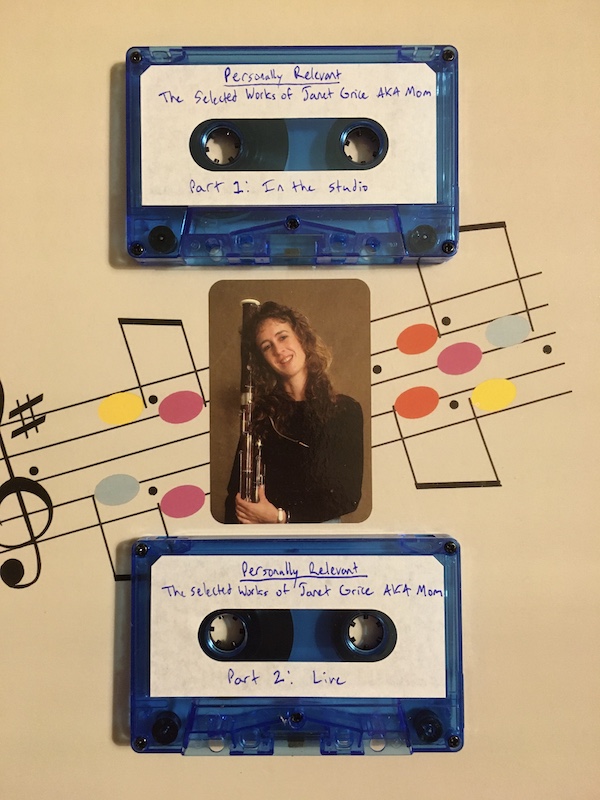 Personally Relevant
The Selected Works of Janet Grice AKA Mom
Part 1: In the studio
Personally Relevant
The selected Works of Janet Grice AKA Mom
Part 2: Live